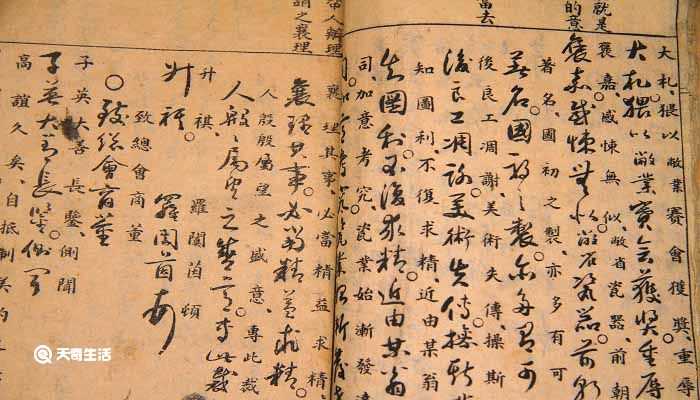 就是
的意
當去
大札猥以敝業賽會獲獎重辱
大札猥以敝業賽會獲獎重辱
褒嘉感悚無似敝省瓷器前朝
褒嘉感悚無似敝省瓷器前朝
著名國初之製亦多有可
著名國初之製亦多有可
後良工凋謝美術失傳操斯
後良工凋謝美術失傳操斯
知圖利不復求精近由某翁
知圖利不復求精近由某翁
司加意考究瓷業始漸發達
人辦理
謂之襄理
襄理其事必當精益求精
襄理其事必當精益求精
人殷殷屬望之盛意專此裁
人殷殷屬望之盛意專此裁
升祺 羅閬茵頓
升祺 羅閬茵頓
致總會商董
致總會商董
子英大善長鑒側聞
子英大善長鑒側聞
高誼久矣自抵制美約
天奇生活